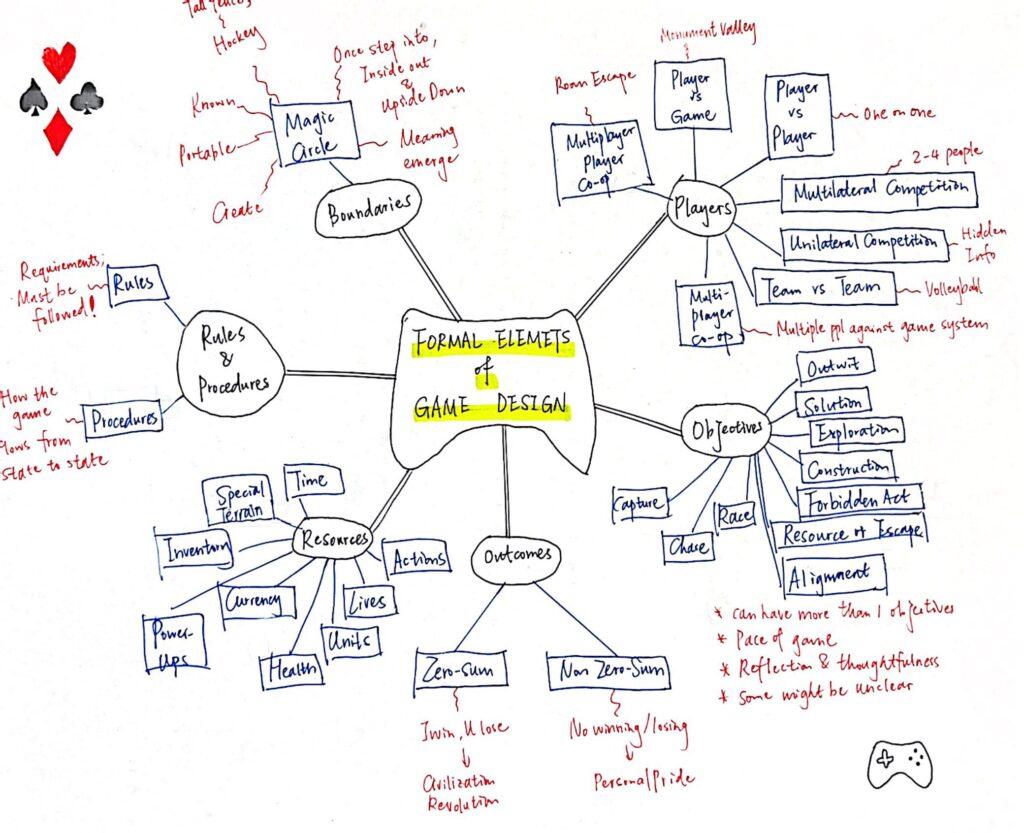 Tall fences
Hockey
Known
Portable
Create
Once step into,
Inside out
&
Upside Down
Mearning
emerge
Magic
Circle
Boundaries
Monument Valley
Roan Escape
Player
vs
Game
Player
vs
Player
One on one
Multiplayer
Player
Co-op
Players
2-4 people
Multilateral Competition
Unilateral Competition
Hidden
Info
Team vs Team
Volleyball
Multi-
player
co-op
Multiple ppl against game system
Requirements;
Must be
followed!
Rules
Rules
&
Procedures
How the
game
lows from
state to state
Procedures
FORMAL ELEMETS
of
GAME DESIGN
Objectives
Outwit
Solution
Exploration
Construction
Forbidden Act
Resource or Escape
Alignment
Capture
Chase
Race
* can have more than 1 objectives
* Pace of game
* Reflection & thoughtfulness
* Some might be unclear
Resources
Time
Special
Terrain
Inventory
Power-
Ups
Currency
Health
Units
Lives
Actions
Outcomes
Zero-Sum
I win, U lose
Civilization
Revolution
Non Zero-Sum
No winning/losing
Personal Pride